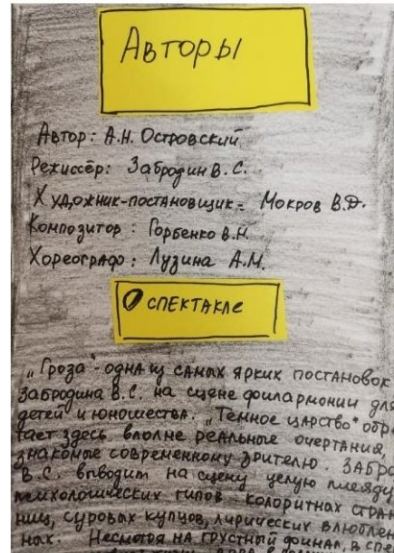 Авторы
Автор: А.Н. Островский
Режиссёр: Забродин В.С.
Художник-постановщик: Мокров В.Ф.
Композитор: Горбенко В.Н.
Хореограф: Лузина А.М.
О СПЕКТАКЛЕ
„Гроза"- одна из самых ярких постановок
Забродина В.С. на сцене филармонии для
детей и юношества. „Темное царство" обре
тает здесь вполне реальные очертания,
знакомые современному зрителю. Забро
В.С. выводит на сцену целую плеяду
психологических типов колоритных стран
ниц, суровых купцов, лирических влюблен
ных. Несмотря на грустный финал в спе